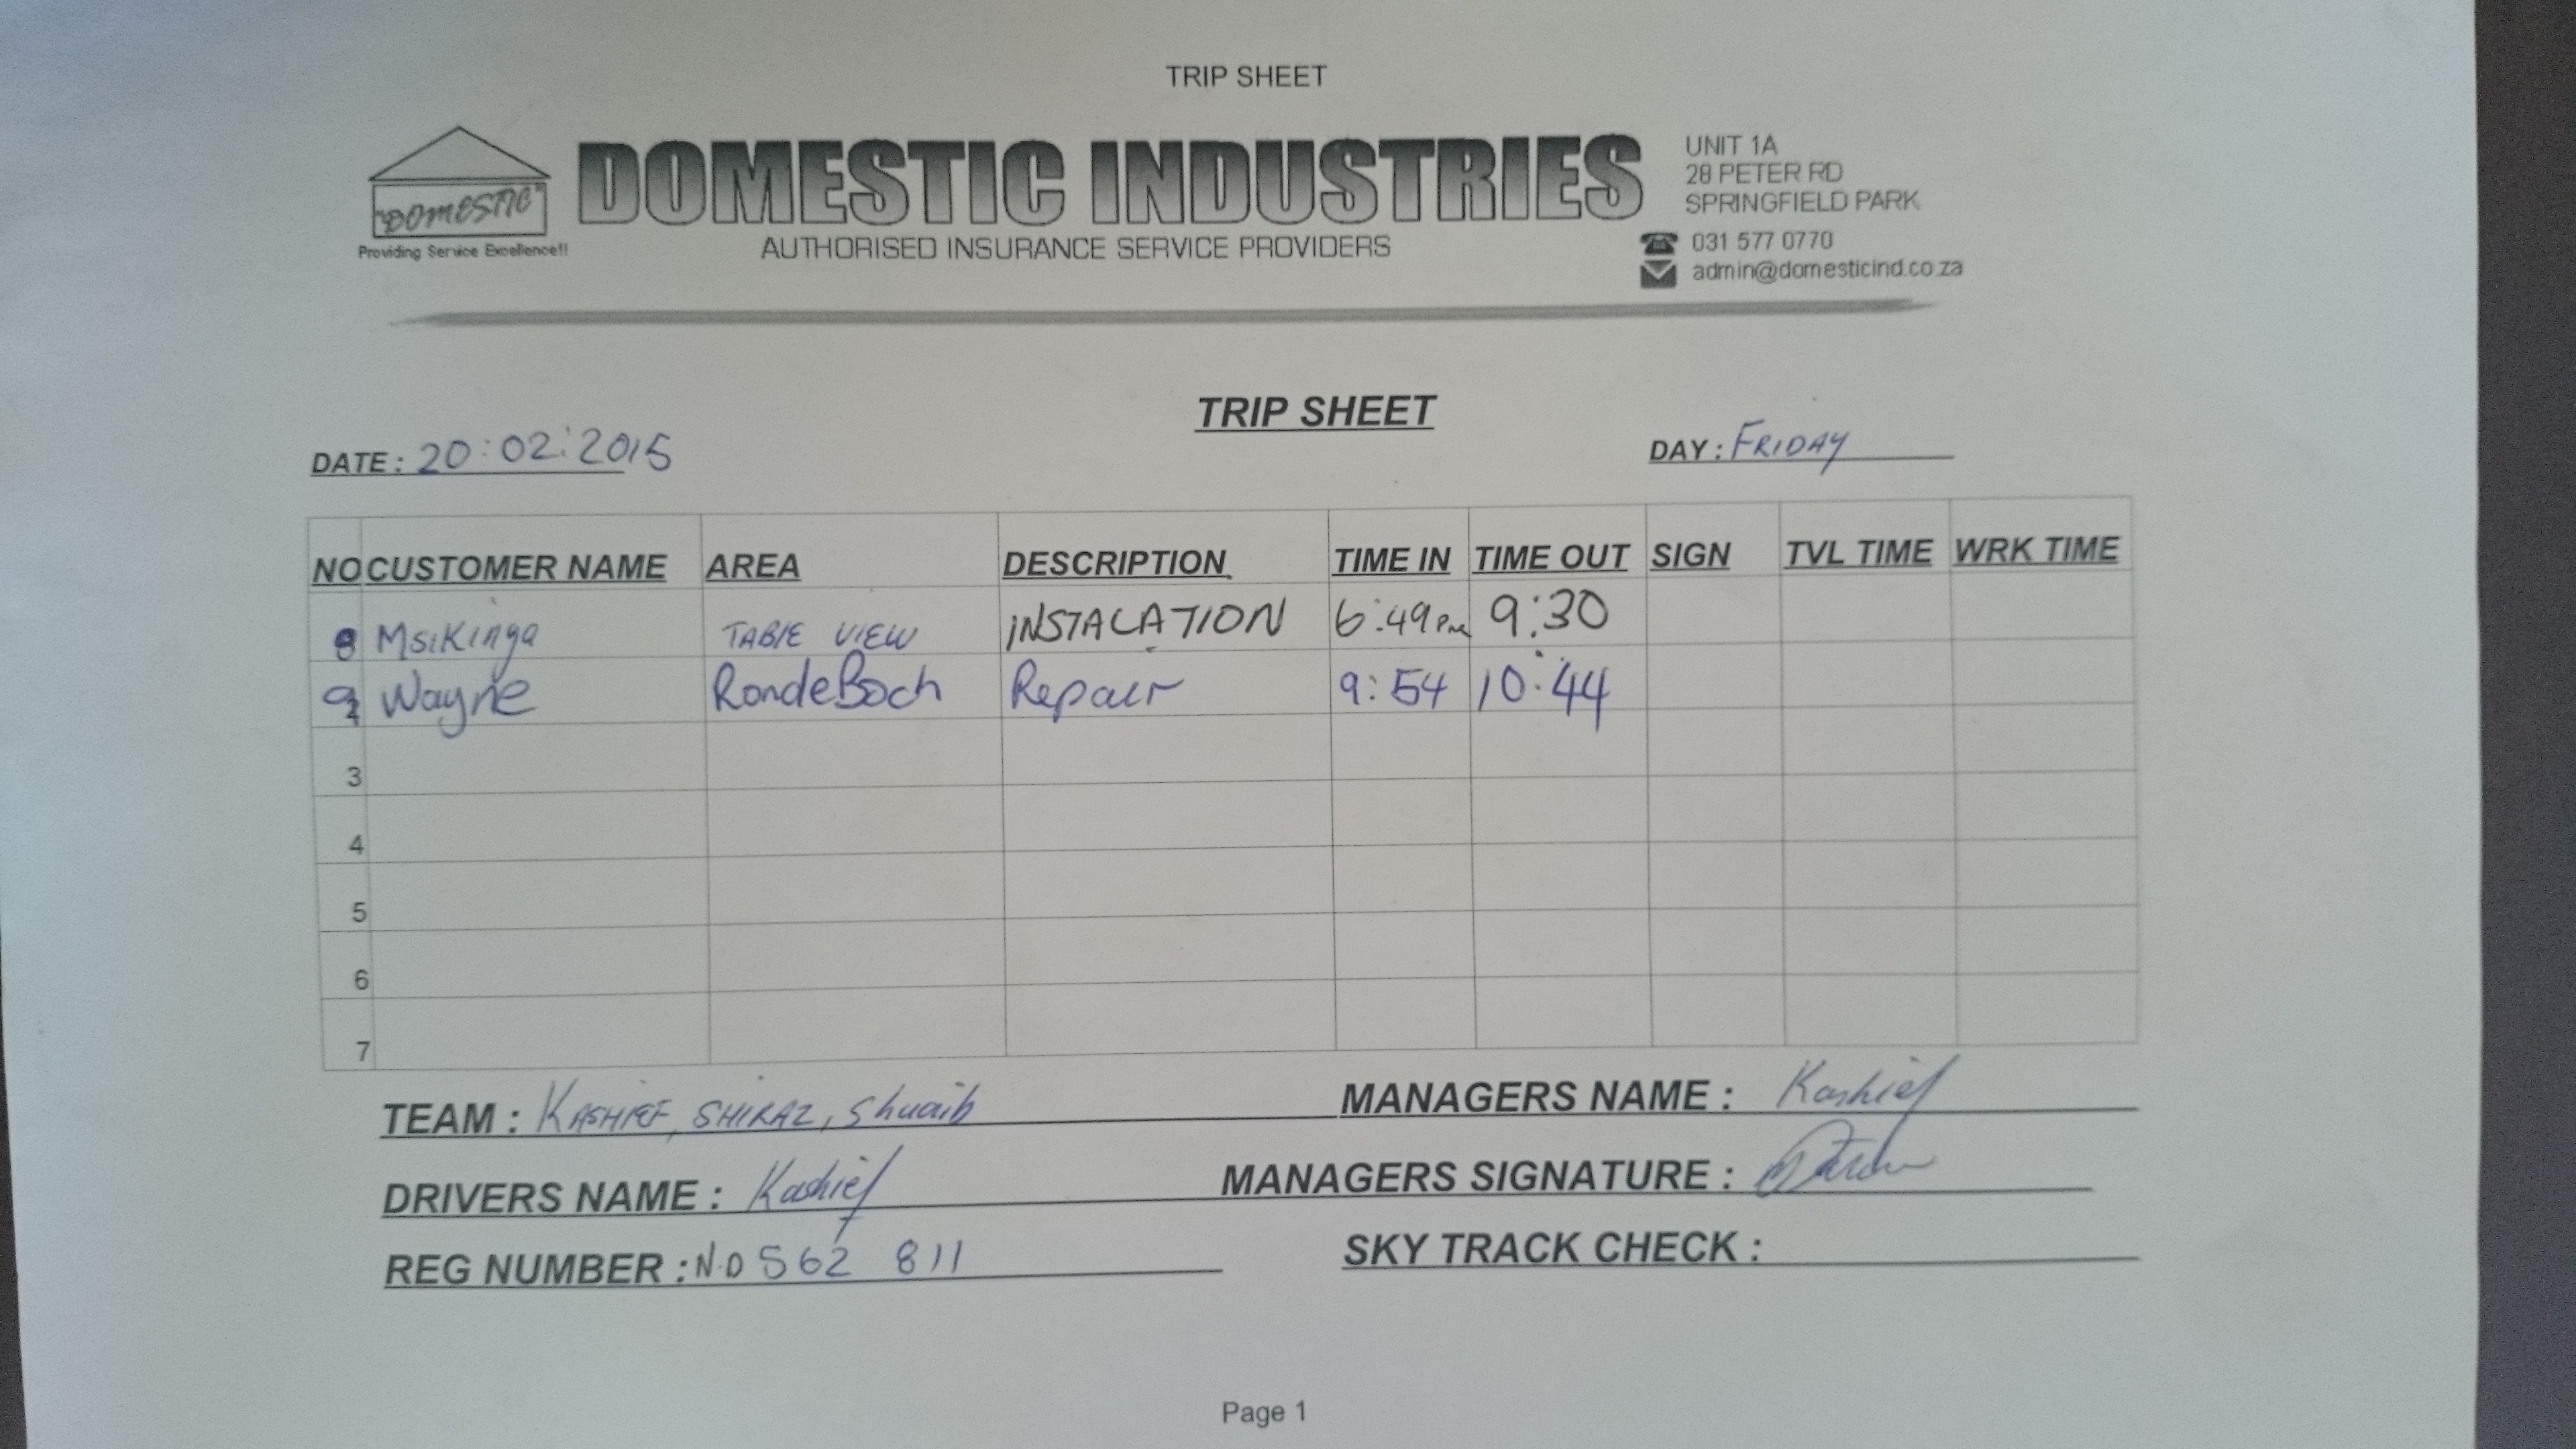 TRIP SHEET
"DOMESTIC"
Providing Service Excellence!!
DOMESTIC INDUSTRIES
AUTHORISED INSURANCE SERVICE PROVIDERS
UNIT 1A
28 PETER RD
SPRINGFIELD PARK
031 577 0770
admin@domesticind.co.za
TRIP SHEET
DATE : 20:02:2015 DAY : FRIDAY
NO CUSTOMER NAME AREA DESCRIPTION TIME IN TIME OUT SIGN TVL TIME WRK TIME
8 MsiKinga TABLE VIEW INSTALATION 6:49pm 9:30
9 Wayne RondeBoch Repair 9:54 10:44
3
4
5
6
7
TEAM : KASHIEF, SHIRAZ, Shuaib MANAGERS NAME : Kashief
DRIVERS NAME : Kashief MANAGERS SIGNATURE :
REG NUMBER : N.D 562 811 SKY TRACK CHECK :
Page 1